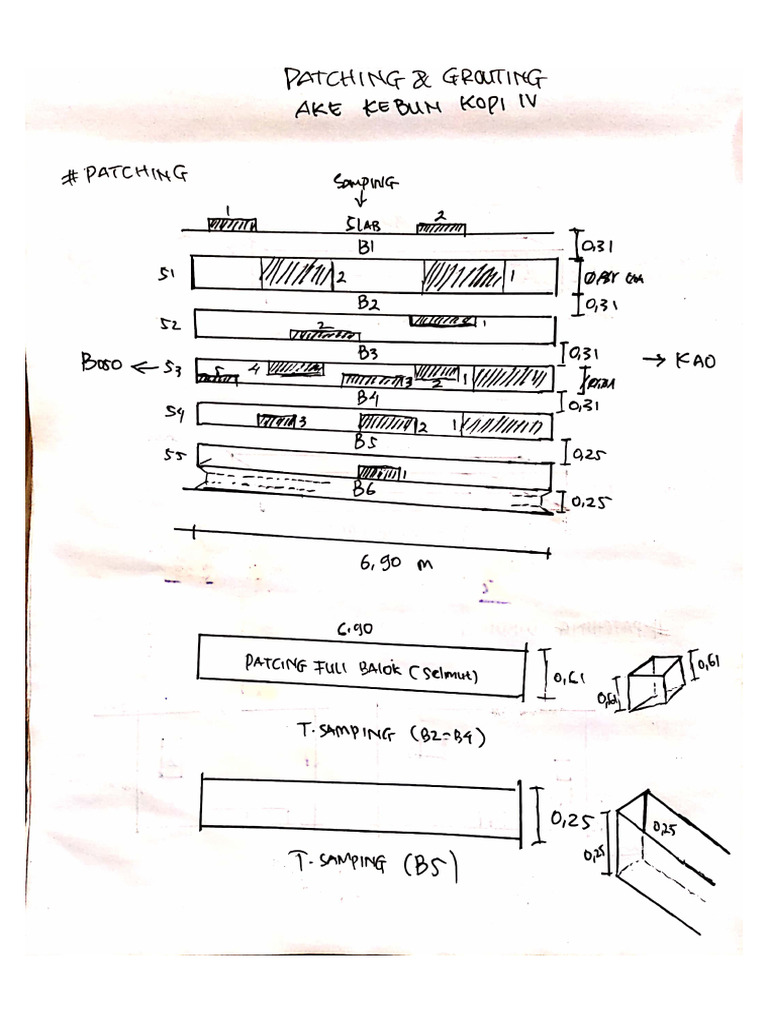 PATCHING & GROUTING
AKE KEBUN KOPI IV
#PATCHING
SAMPING
1
SLAB
2
B1
0,31
S1
2
1
B2
0,31
S2
2
1
B3
0,31
BOSO
S3
5
4
3
2
1
KAO
B4
0,31
S4
3
2
1
B5
S5
0,25
1
B6
0,25
6,90 m
6.90
PATCING FULL BALOK (Selmut)
0,61
0,61
0,61
T. SAMPING (B2=B4)
0,25
0,25
0,25
T. SAMPING (B5)